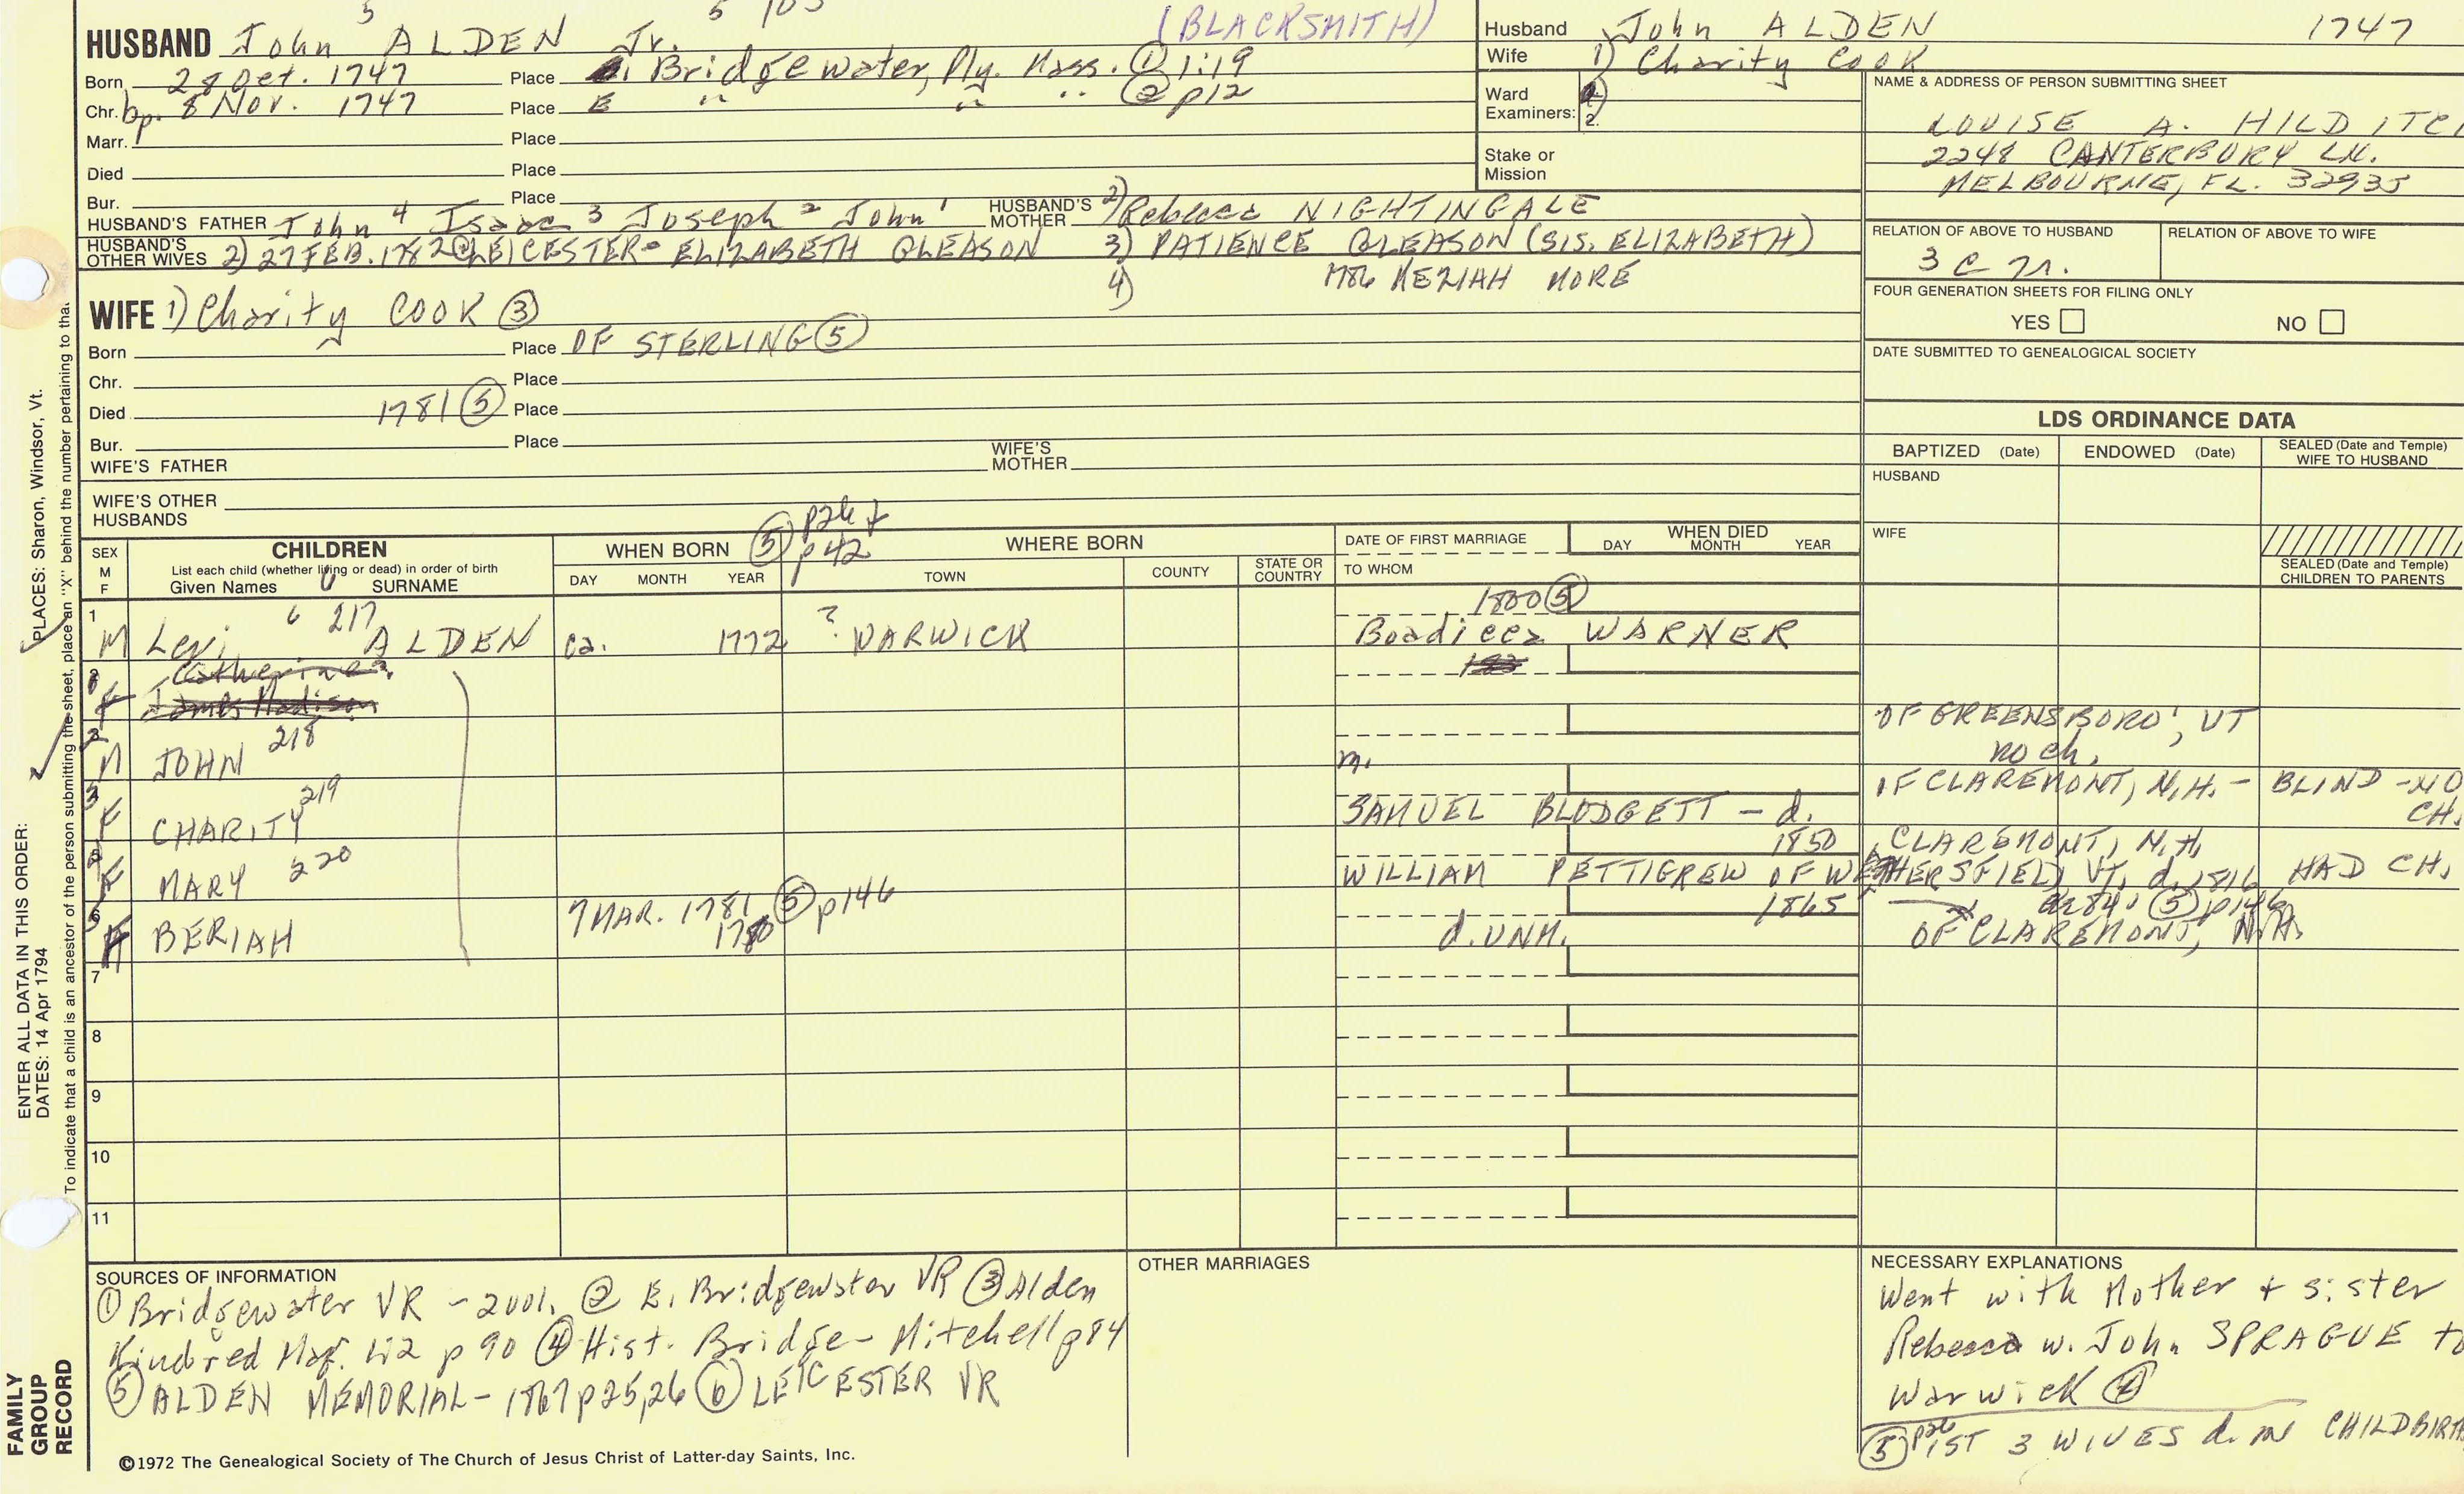 5
5 105
(BLACKSMITH)
HUSBAND John ALDEN Jr.
Born 28 Oct. 1747 Place Bridgewater, Ply. Mass. ① 1:19
Chr. bp. 8 Nov. 1747 Place E " " " ② p12
Marr. Place
Died Place
Bur. Place
HUSBAND'S FATHER John 4 Isaac 3 Joseph 2 John 1 HUSBAND'S MOTHER 2) Rebecca NIGHTINGALE
HUSBAND'S OTHER WIVES 2) 27 FEB. 1782 @ LEICESTER - ELIZABETH GLEASON 3) PATIENCE GLEASON (SIS. ELIZABETH)
4) 1786 KEZIAH MORE
WIFE 1) Charity COOK ③
Born Place OF STERLING ⑤
Chr. Place
Died 1781 ⑤ Place
Bur. Place
WIFE'S FATHER WIFE'S MOTHER
WIFE'S OTHER HUSBANDS
Husband John ALDEN 1747
Wife 1) Charity COOK
Ward Examiners: 2.
Stake or Mission
NAME & ADDRESS OF PERSON SUBMITTING SHEET
LOUISE A. HILDITC
2248 CANTERBURY LN.
MELBOURNE, FL. 32935
RELATION OF ABOVE TO HUSBAND RELATION OF ABOVE TO WIFE
3 C
FOUR GENERATION SHEETS FOR FILING ONLY
YES NO
DATE SUBMITTED TO GENEALOGICAL SOCIETY
LDS ORDINANCE DATA
BAPTIZED (Date) ENDOWED (Date) SEALED (Date and Temple) WIFE TO HUSBAND
HUSBAND
WIFE
SEALED (Date and Temple) CHILDREN TO PARENTS
SEX M F
CHILDREN
List each child (whether living or dead) in order of birth
Given Names SURNAME
WHEN BORN ⑤ p26 + p42
DAY MONTH YEAR
WHERE BORN
TOWN COUNTY STATE OR COUNTRY
DATE OF FIRST MARRIAGE
TO WHOM
WHEN DIED
DAY MONTH YEAR
1 6 217 1800 ⑤
M Levi ALDEN ca. 1772 ? WARWICK Boadicea WARNER
Catherine?
F James Madison
2 218 OF GREENSBORO', VT
M JOHN m. no ch.
3 219 OF CLAREMONT, N.H. - BLIND - NO CH.
F CHARITY SAMUEL BLODGETT - d.
220 1850 CLAREMONT, N.H.
F MARY WILLIAM PETTIGREW OF WETHERSFIELD, VT, d. 1816 HAD CH.
7 MAR. 1781 ⑤ p146 1865 ae 84. ⑤ p146
BERIAH 1780 d. UNM. OF CLAREMONT, N.H.
7
8
9
10
11
SOURCES OF INFORMATION
① Bridgewater VR - 2vol. ② E. Bridgewater VR ③ Alden
Kindred Mag. Li2 p 90 ④ Hist. Bridge - Mitchell p84
⑤ ALDEN MEMORIAL - 1867 p25,26 ⑥ LEICESTER VR
OTHER MARRIAGES
NECESSARY EXPLANATIONS
Went with Mother + sister
Rebecca w. John SPRAGUE to
Warwick ④
⑤ p26 1ST 3 WIVES d. IN CHILDBIRTH
©1972 The Genealogical Society of The Church of Jesus Christ of Latter-day Saints, Inc.
FAMILY GROUP RECORD
ENTER ALL DATA IN THIS ORDER:
DATES: 14 Apr 1794
PLACES: Sharon, Windsor, Vt.
To indicate that a child is an ancestor of the person submitting the sheet, place an "X" behind the number pertaining to that